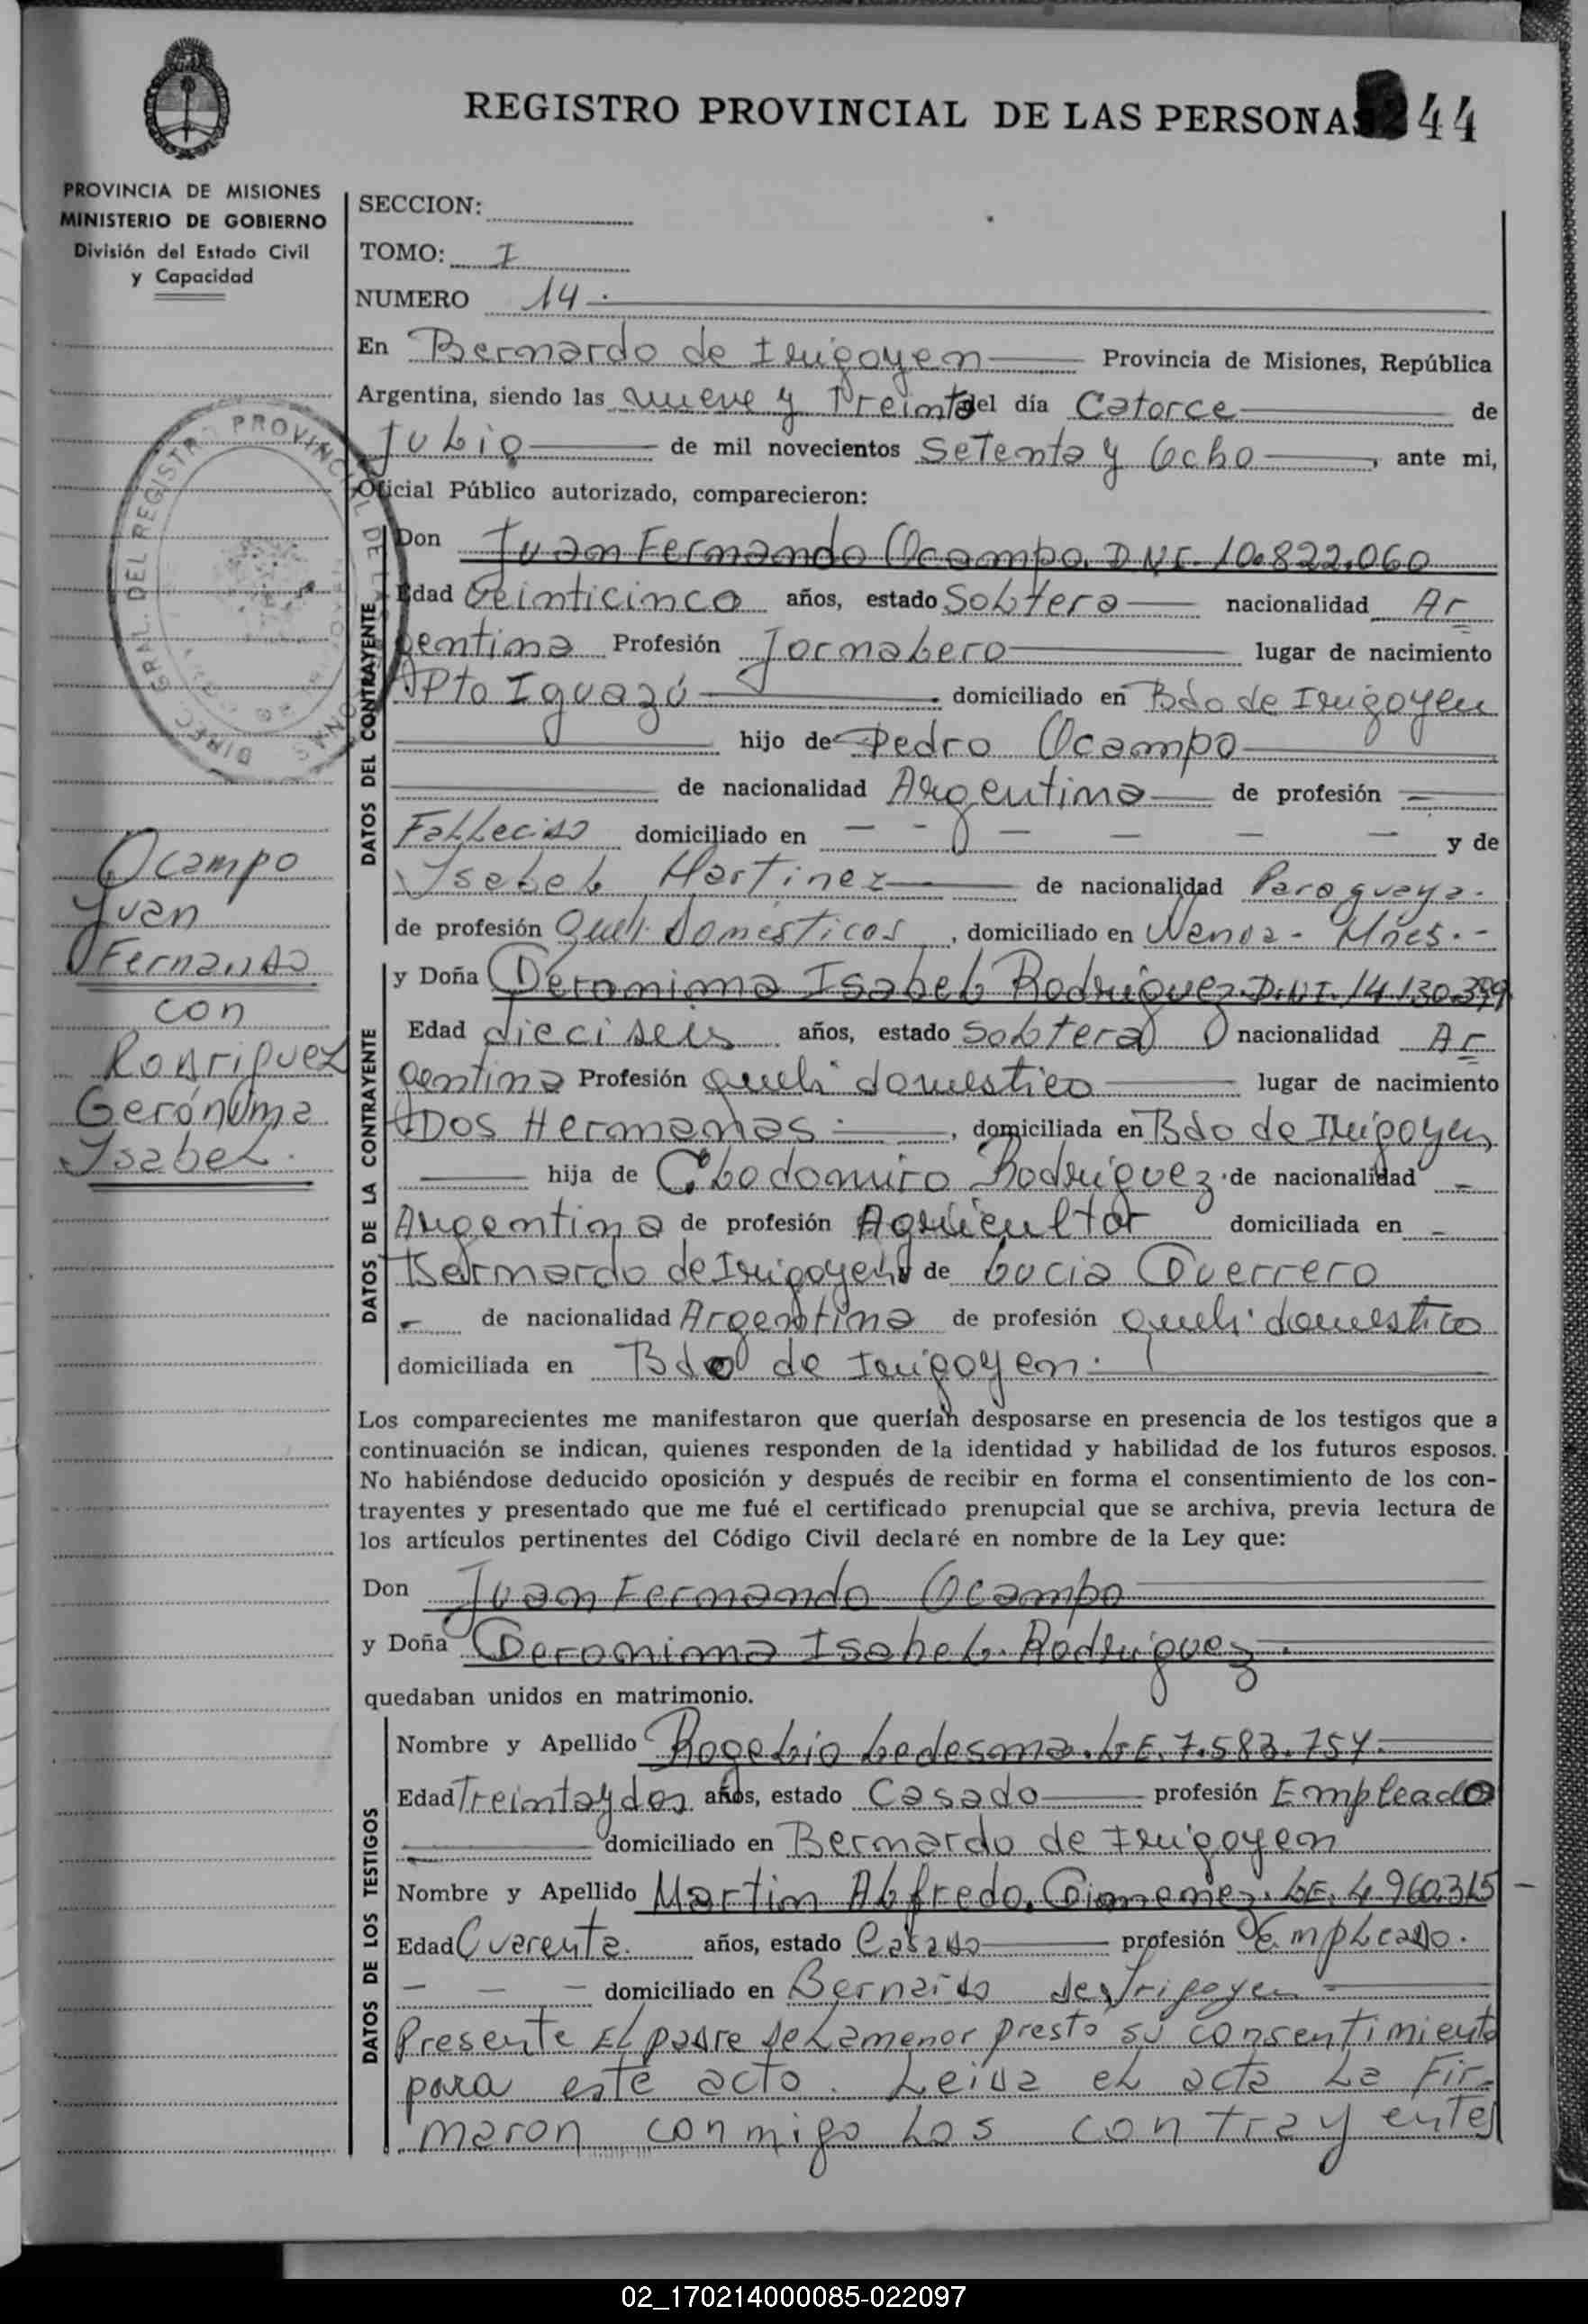 REGISTRO PROVINCIAL DE LAS PERSONAS 44
PROVINCIA DE MISIONES
MINISTERIO DE GOBIERNO
División del Estado Civil
y Capacidad
SECCION:
TOMO: I
NUMERO 14.
En Bernardo de Irigoyen Provincia de Misiones, República
Argentina, siendo las nueve y Treinta del día Catorce de
Julio de mil novecientos Setenta y Ocho, ante mi,
Oficial Público autorizado, comparecieron:
DIREC. GRAL. DEL REGISTRO PROVINCIAL DE LAS PERSONAS
DATOS DEL CONTRAYENTE
Don Juan Fernando Ocampo. D.N.I. 10.822.060
Edad Veinticinco años, estado Soltero nacionalidad Ar
gentina Profesión Jornalero lugar de nacimiento
Pto Iguazú domiciliado en Bdo de Irigoyen
hijo de Pedro Ocampo
de nacionalidad Argentina de profesión -
Fallecido domiciliado en - - - - - - y de
Isabel Martinez de nacionalidad Paraguaya.
de profesión Queh. Domésticos, domiciliado en Wanda - Mnes. -
Ocampo
Juan
Fernando
con
Rodriguez
Gerónima
Isabel.
DATOS DE LA CONTRAYENTE
y Doña Geronima Isabel Rodriguez. D.N.I. 14.130.399
Edad dieciseis años, estado Soltera nacionalidad Ar
gentina Profesión queh. domestico lugar de nacimiento
Dos Hermanas, domiciliada en Bdo de Irigoyen
hija de Clodomiro Rodriguez de nacionalidad -
Argentina de profesión Agricultor domiciliada en -
Bernardo de Irigoyen y de Lucia Guerrero
- de nacionalidad Argentina de profesión queh. domestico
domiciliada en Bdo de Irigoyen.
Los comparecientes me manifestaron que querían desposarse en presencia de los testigos que a
continuación se indican, quienes responden de la identidad y habilidad de los futuros esposos.
No habiéndose deducido oposición y después de recibir en forma el consentimiento de los con-
trayentes y presentado que me fué el certificado prenupcial que se archiva, previa lectura de
los artículos pertinentes del Código Civil declaré en nombre de la Ley que:
Don Juan Fernando Ocampo
y Doña Geronima Isabel Rodriguez.
quedaban unidos en matrimonio.
DATOS DE LOS TESTIGOS
Nombre y Apellido Rogelio Ledesma. L.E. 7.583.754.
Edad Treinta y dos años, estado Casado profesión Empleado
domiciliado en Bernardo de Irigoyen
Nombre y Apellido Martin Alfredo Gimenez. L.E. 4.960.315 -
Edad Cuarenta. años, estado Casado profesión Empleado.
- - - domiciliado en Bernardo de Irigoyen -
Presente El padre de La menor presto su consentimiento
para este acto. Leida el acta La Fir-
maron conmigo Los contrayentes
02_170214000085-022097